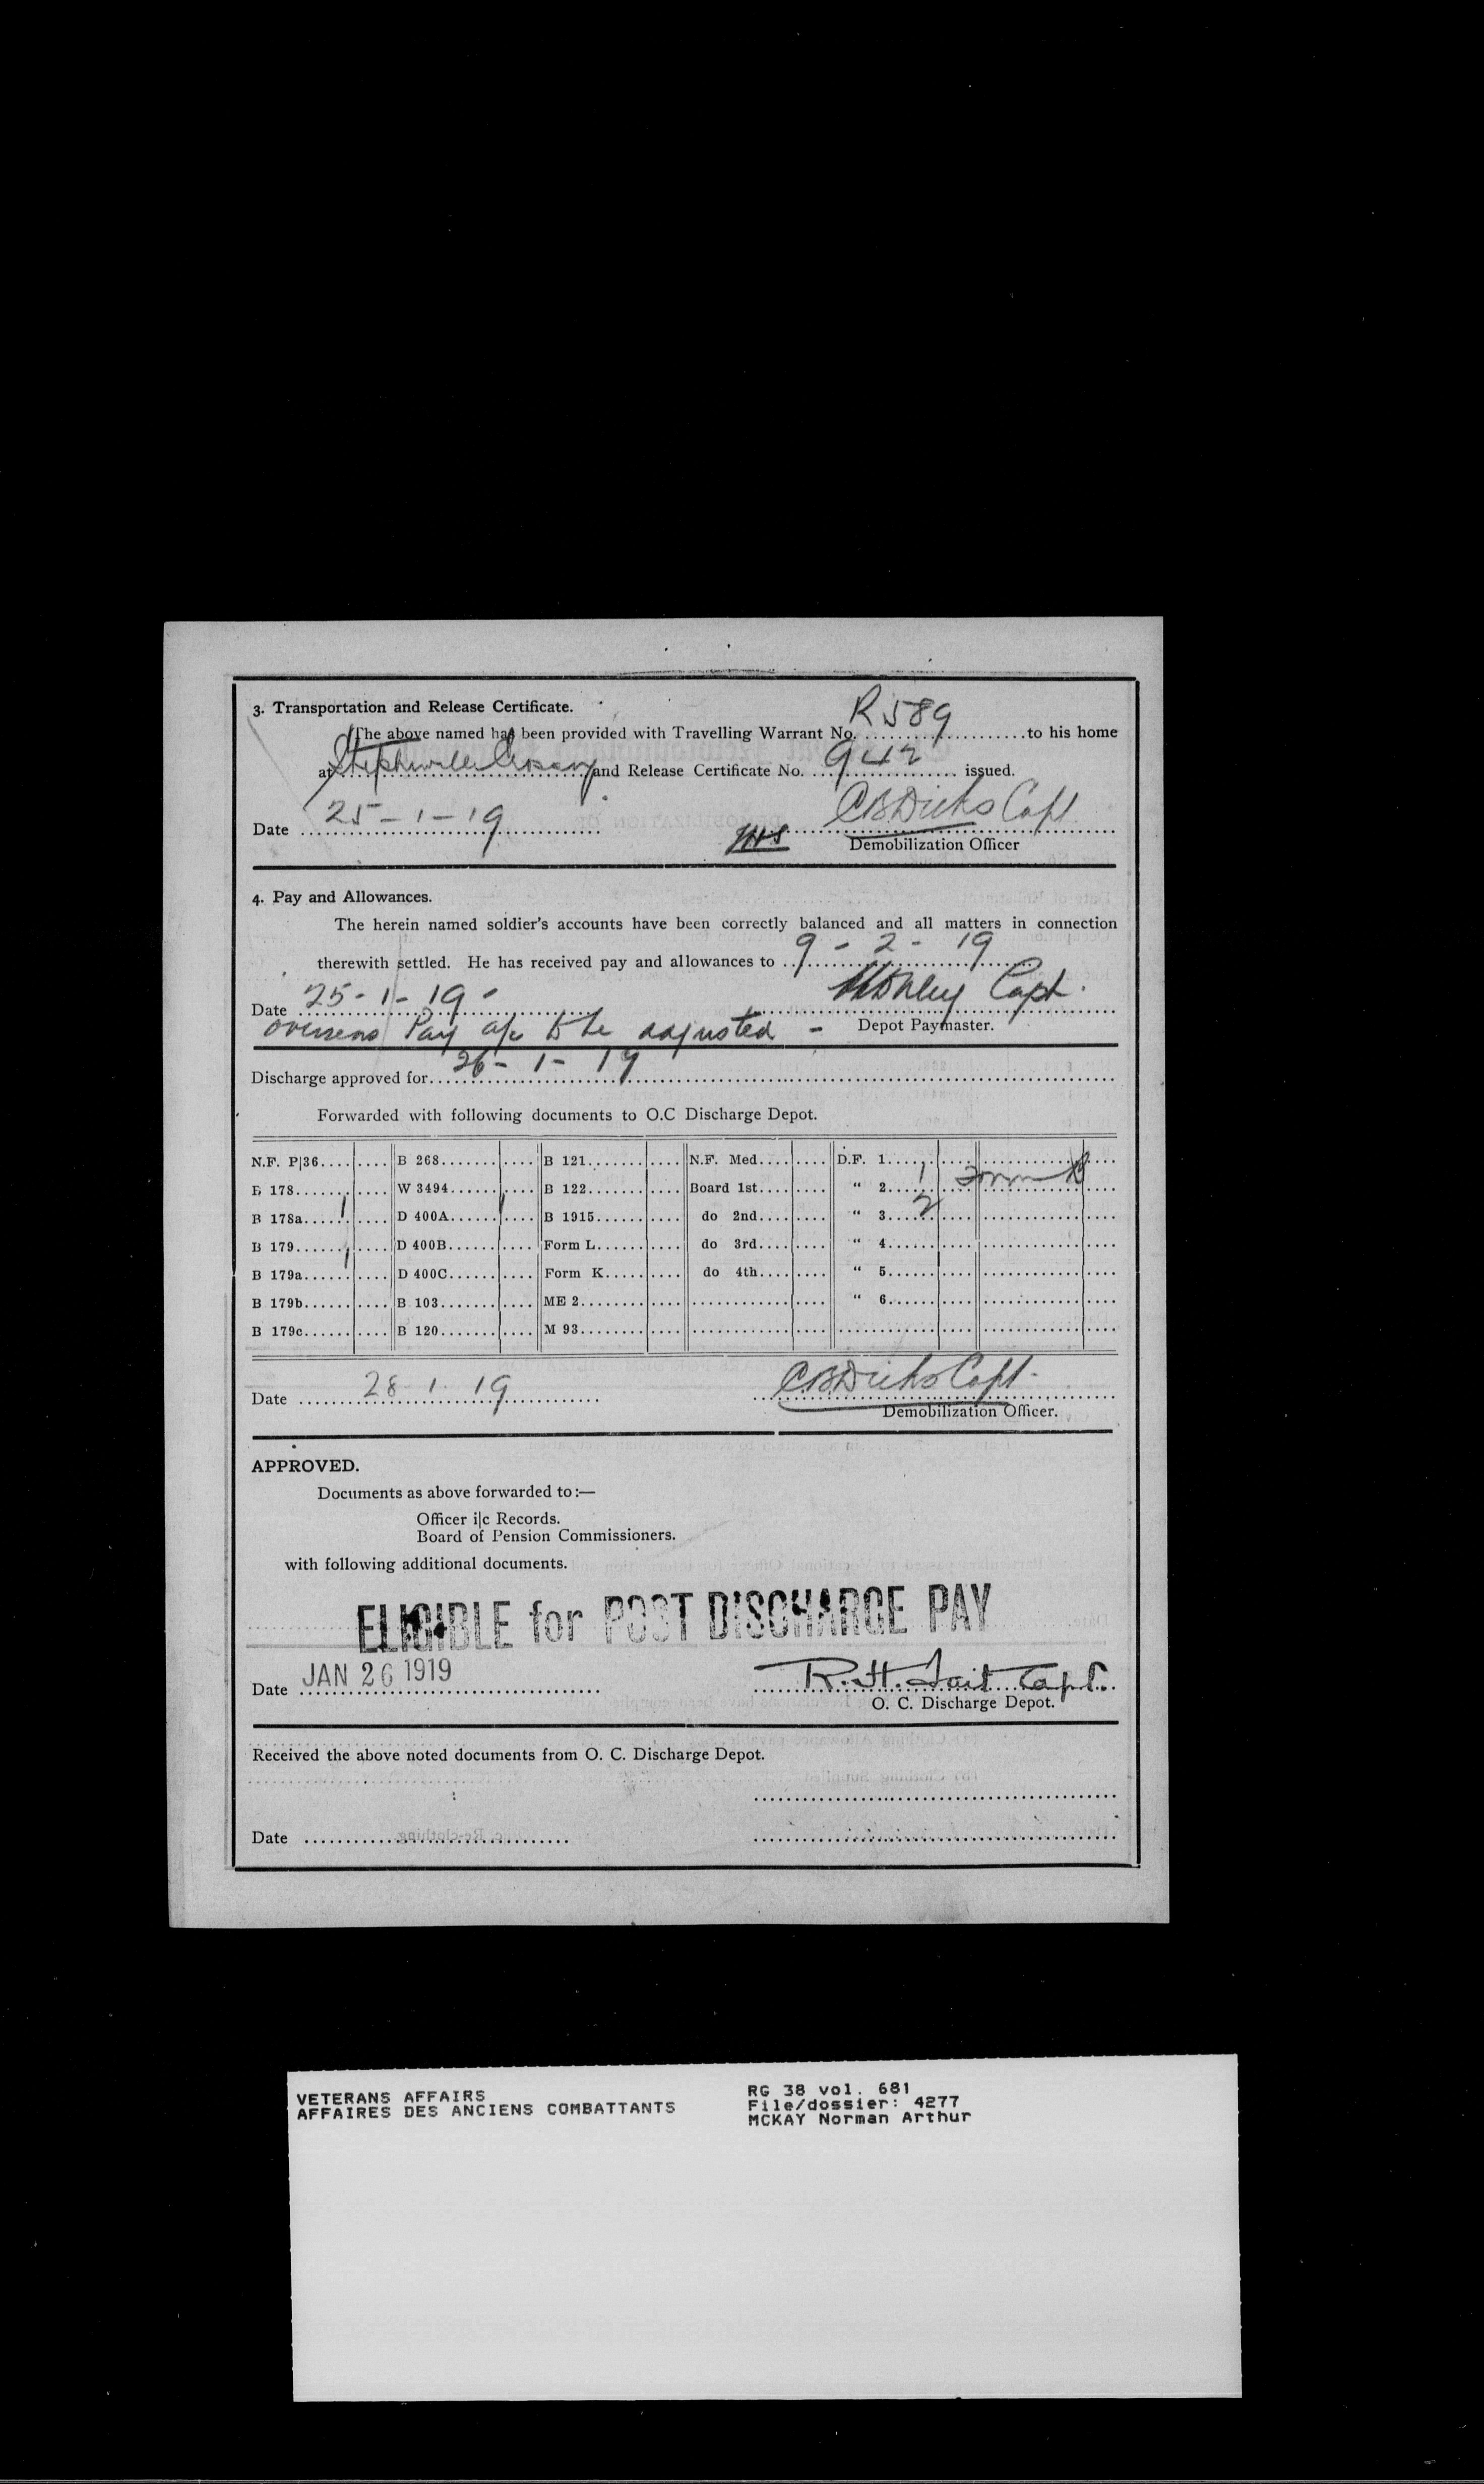 3. Transportation and Release Certificate.
The above named has been provided with Travelling Warrant No. R589 to his home
at Stephenville Crossing and Release Certificate No. 942 issued.
Date 25-1-19 C B Dicks Capt
Demobilization Officer
4. Pay and Allowances.
The herein named soldier's accounts have been correctly balanced and all matters in connection
therewith settled. He has received pay and allowances to 9-2-19
Date 25-1-19- Capt.
overseas Pay a/c to be adjusted - Depot Paymaster.
Discharge approved for 26-1-19
Forwarded with following documents to O.C Discharge Depot.
N.F. P|36 B 268 B 121 N.F. Med. D.F. 1
B 178 W 3494 B 122 Board 1st " 2 1 Form K
B 178a 1 D 400A 1 B 1915 do 2nd " 3 2
B 179 D 400B Form L do 3rd " 4
B 179a 1 D 400C Form K do 4th " 5
B 179b B 103 ME 2 " 6
B 179c B 120 M 93
Date 28-1-19 C B Dicks Capt.
Demobilization Officer.
APPROVED.
Documents as above forwarded to:—
Officer i|c Records.
Board of Pension Commissioners.
with following additional documents.
ELIGIBLE for POST DISCHARGE PAY
Date JAN 26 1919 R. H. Tait Capt.
O. C. Discharge Depot.
Received the above noted documents from O. C. Discharge Depot.
Date
VETERANS AFFAIRS
AFFAIRES DES ANCIENS COMBATTANTS
RG 38 vol. 681
File/dossier: 4277
MCKAY Norman Arthur